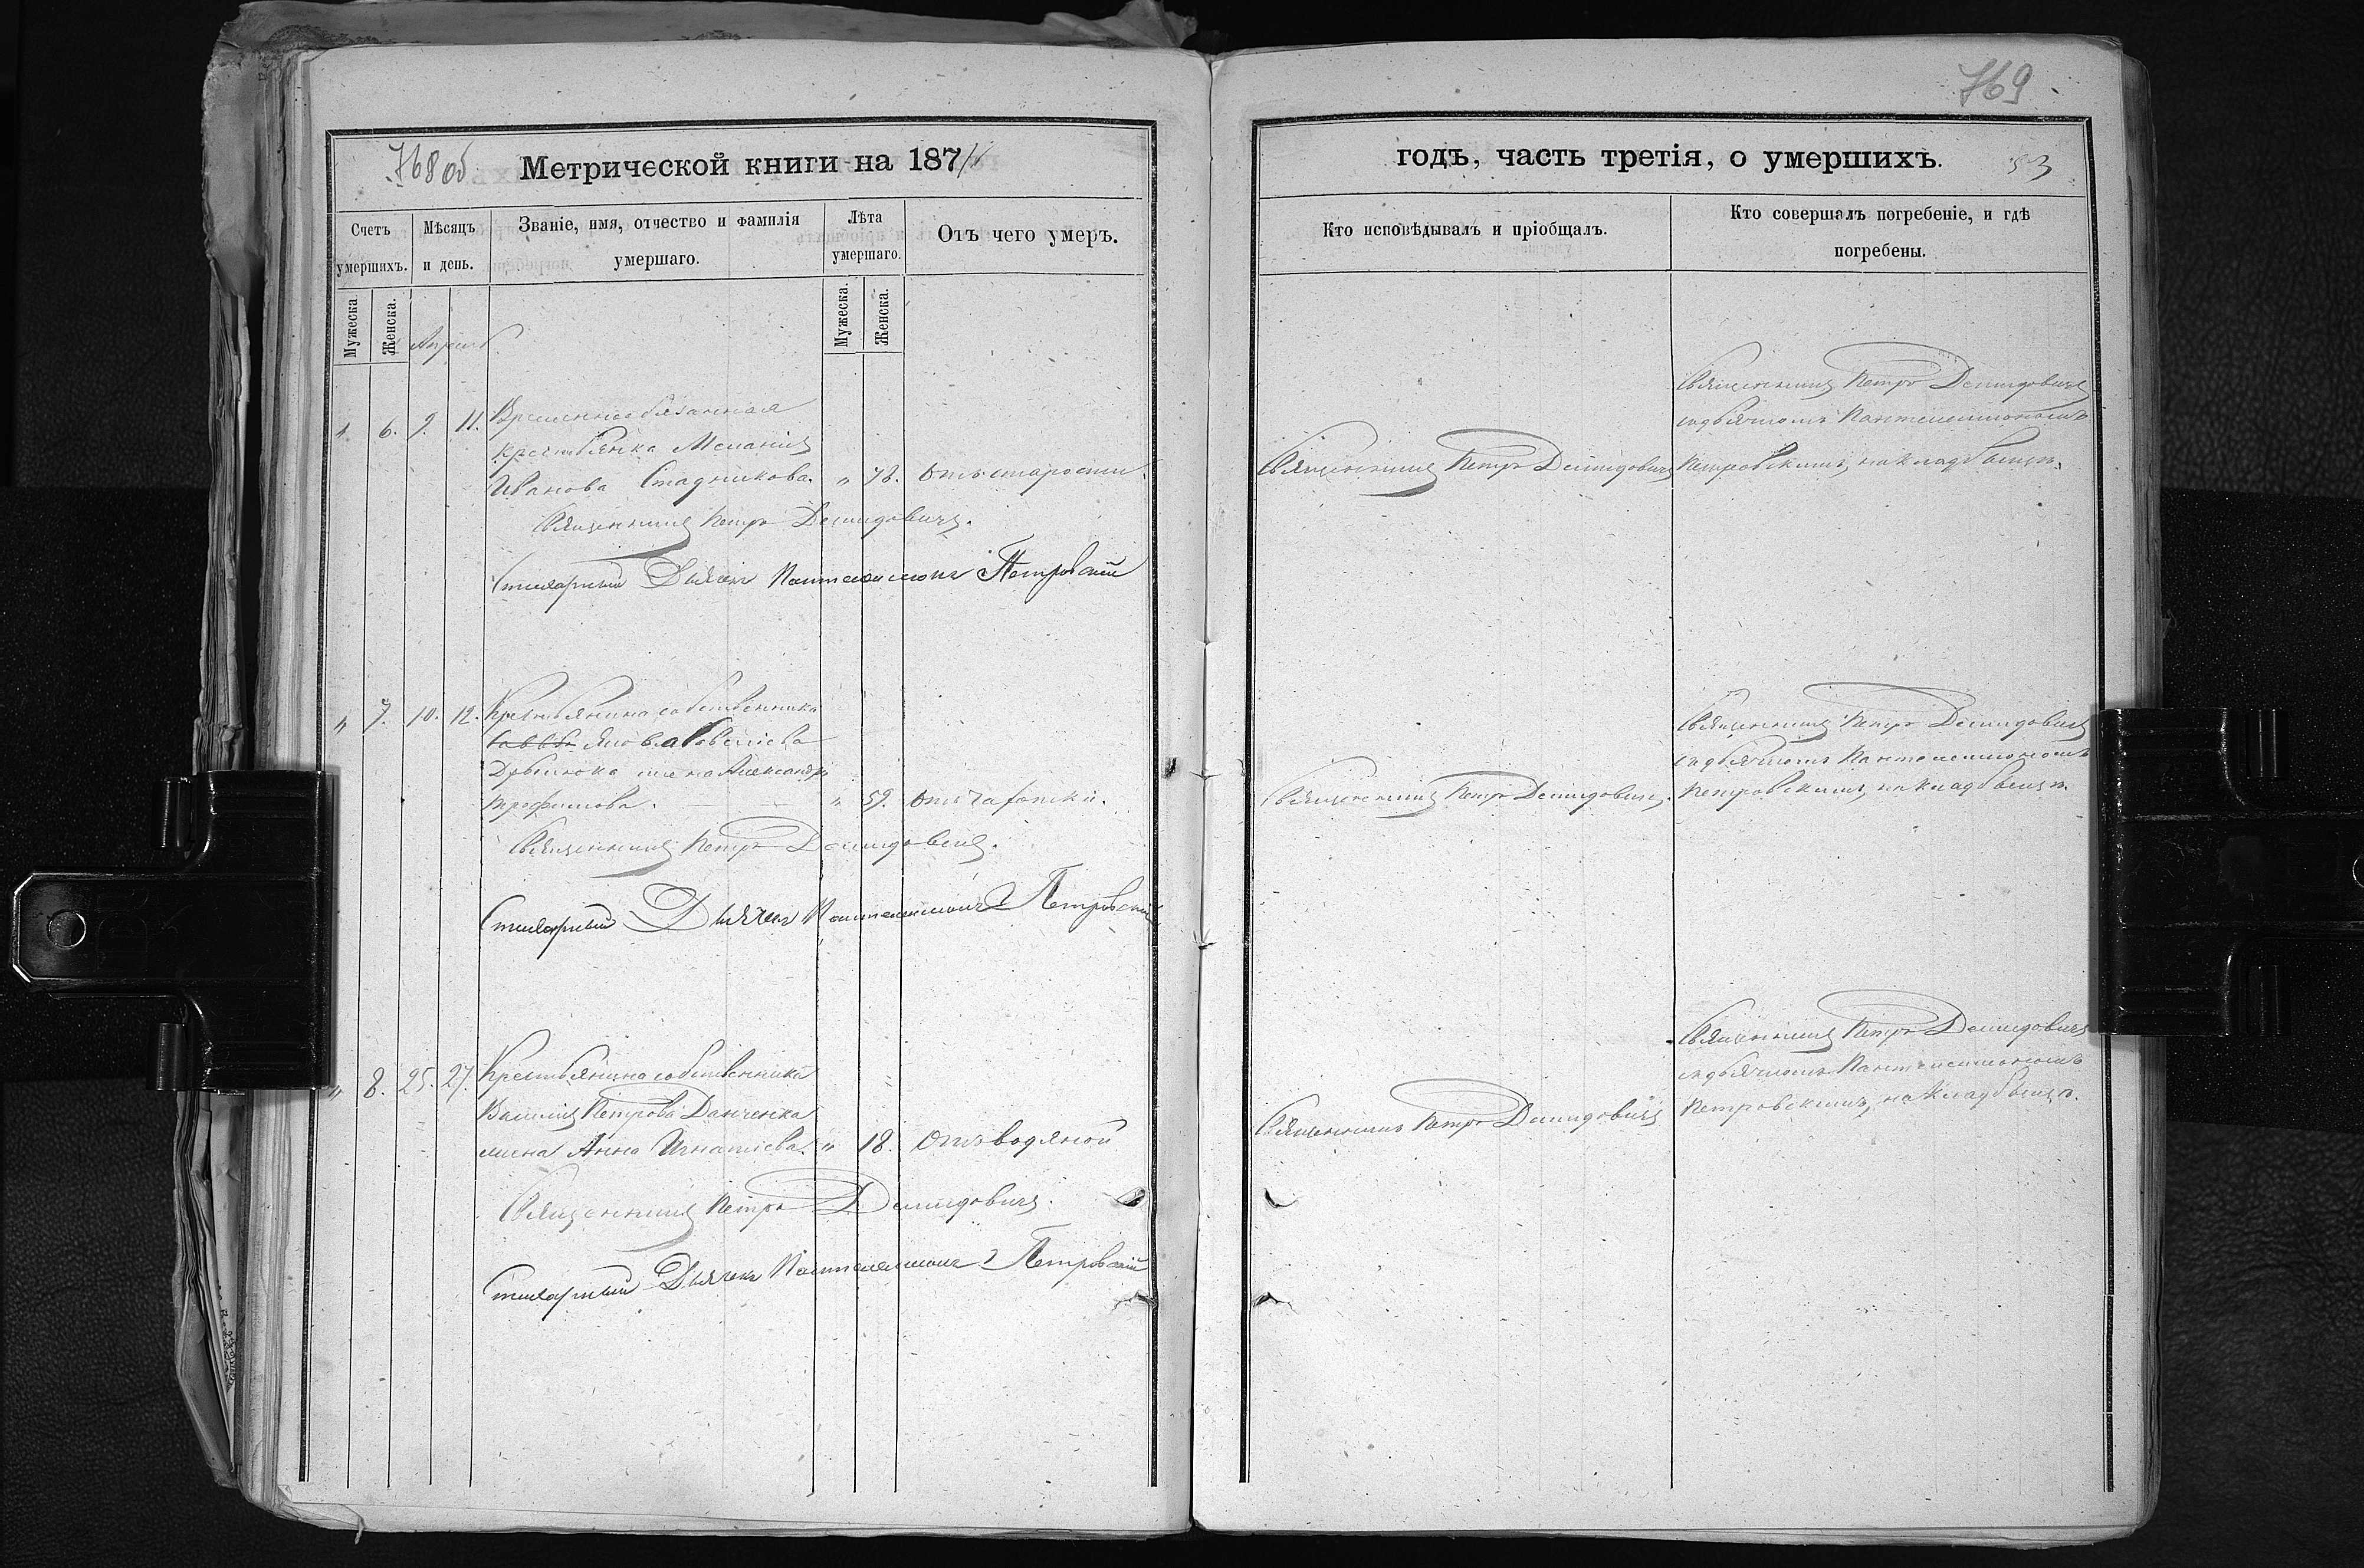 768 об
Метрической книги на 187
Счетъ умершихъ.
Мѣсяцъ и день.
Званіе, имя, отчество и фамилія умершаго.
Лѣта умершаго.
Отъ чего умеръ.
Мужеска
Женска.
Мужеска.
Женска.
Апрель
6. 9. 11. Временнообязанная
крестьянка Меланія
Иванова Стадникова. " 78. Отъ старости
Священникъ Петръ Демидовичъ.
Стихарный Дьячекъ Пантелеимонъ Петровскій
" 7. 10. 12. Крестьянина собственника
Якова Савелiева
жена Александра
Трофимова. " 59. Отъ чахотки.
Священникъ Петръ Демидовичъ.
Стихарный Дьячекъ Пантелеимонъ Петровскій
" 8. 25. 27. Крестьянина собственника
Василія Петрова Данченка
жена Анна Игнатіева. " 18. Отъ водяной
Священникъ Петръ Демидовичъ.
Стихарный Дьячекъ Пантелеимонъ Петровскій
769
годъ, часть третія, о умершихъ. 53
Кто исповѣдывалъ и пріобщалъ.
Кто совершалъ погребеніе, и гдѣ
погребены.
Священникъ Петръ Демидовичъ
Священникъ Петръ Демидовичъ
съ дьячкомъ Пантелеимономъ
Петровскимъ, на кладбищѣ.
Священникъ Петръ Демидовичъ.
Священникъ Петръ Демидовичъ
съ дьячкомъ Пантелеимономъ
Петровскимъ, на кладбищѣ.
Священникъ Петръ Демидовичъ
Священникъ Петръ Демидовичъ
съ дьячкомъ Пантелеимономъ
Петровскимъ, на кладбищѣ.